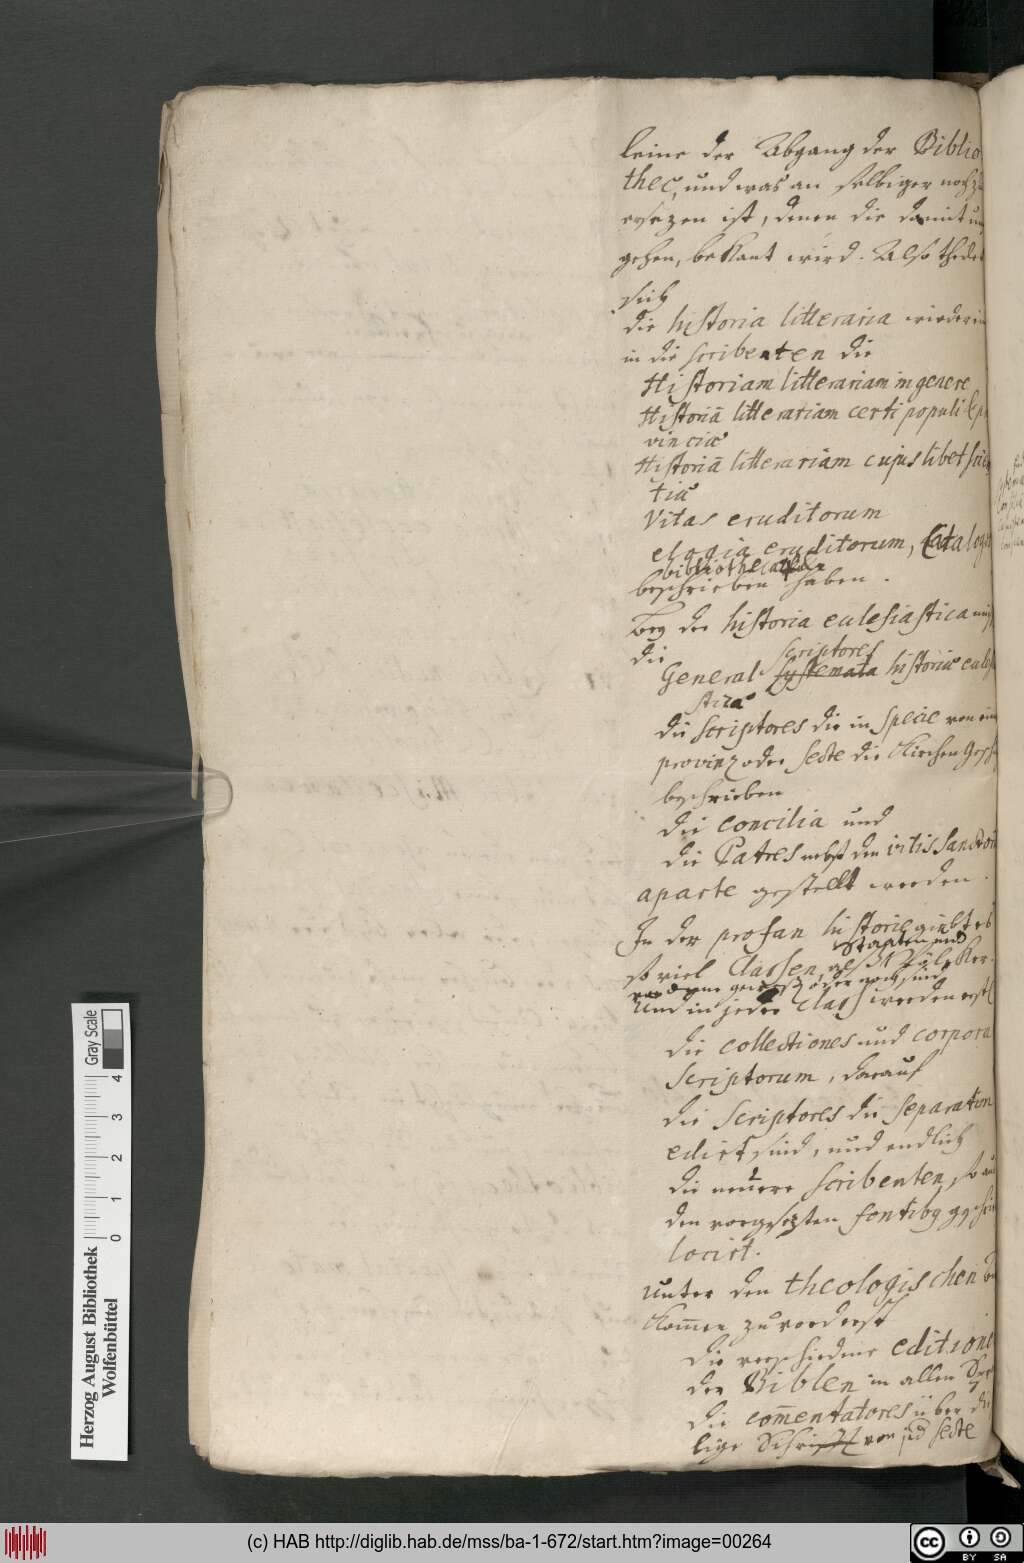 leine der Abgang der Biblio
thec, und was an selbiger noch zu
ersezen ist, denen die damit um
gehen, bekant wird. Also
sich
die historia litteraria wiederum
in die scribenten die
Historiam litterariam in genere
Historiā litterariam certi populi &
vinciæ
Historiā litterariam cujuslibet scien
tiæ
Vitas eruditorum
elogia eruditorum, Catalogos
bibliothecarum
beschrieben haben.
Bey der historia eclesiastica
die
General scriptores
systemata historiæ eclesi
sticæ
die scriptores die in specie von
provinz oder secte die Kirchen
beschrieben
die concilia und
die Patres nebst den vitis Sanctor
aparte gestellt werden.
In der profan historie giebt es
Staaten und
so viel Classen, als Völcker
gewest oder noch sind
Und in jeder Class werden erstl
die collectiones und corpora
Scriptorum, darauf
die Scriptores die separatim
edirt sind, und endlich
die neuere scribenten, so aus
den vorgesezten fontibus
locirt.
Unter den theologischen
Kom̄en zuvorderst
die verschiedene editiones
der Biblen in allen
die com̄entatores über die
lige Schrifft von secte
Gray Scale
4
3
2
1
0
Herzog August Bibliothek
Wolfenbüttel
(c) HAB http://diglib.hab.de/mss/ba-1-672/start.htm?image=00264
cc BY SA